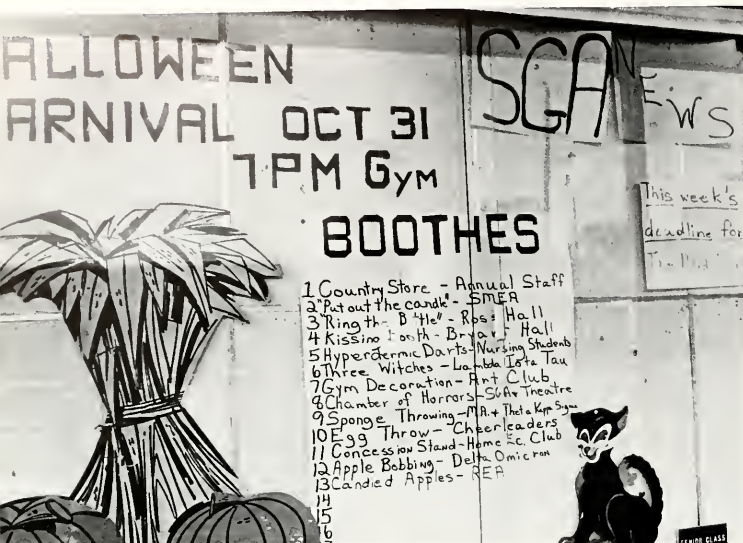 ALLOWEEN
ARNIVAL OCT 31
7 PM GYM
BOOTHES
1 Country Store - Annual Staff
2 "Put out the candle" - SMEA
3 "Ring th- B ttle" - Ross Hall
4 Kissing ooth - Bryan Hall
5 Hyperdermic Darts - Nursing Students
6 Three Witches - Lambda Iota Tau
7 Gym Decoration - Art Club
8 Chamber of Horrors - SGA & Theatre
9 Sponge Throwing - M.A. & Theta Kappa Sigma
10 Egg Throw - Cheerleaders
11 Concession Stand - Home Ec. Club
12 Apple Bobbing - Delta Omicron
13 Candied Apples - REA
14
15
16
SGA NEWS
This week's
deadline for
SENIOR CLASS